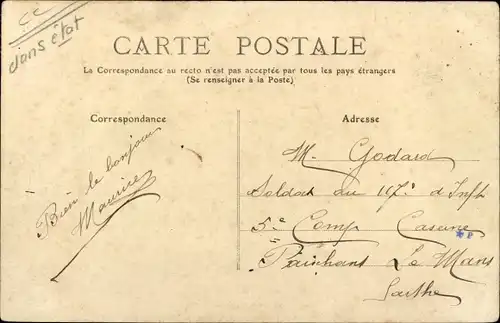 CC
dans état
CARTE POSTALE
La Correspondance au recto n'est pas acceptée par tous les pays étrangers
(Se renseigner à la Poste)
Correspondance
Bien le bonjour
Maurice
Adresse
M. Godard
Soldat au 117e d'Inft
5e Comp Caserne
Le Mans
Sarthe